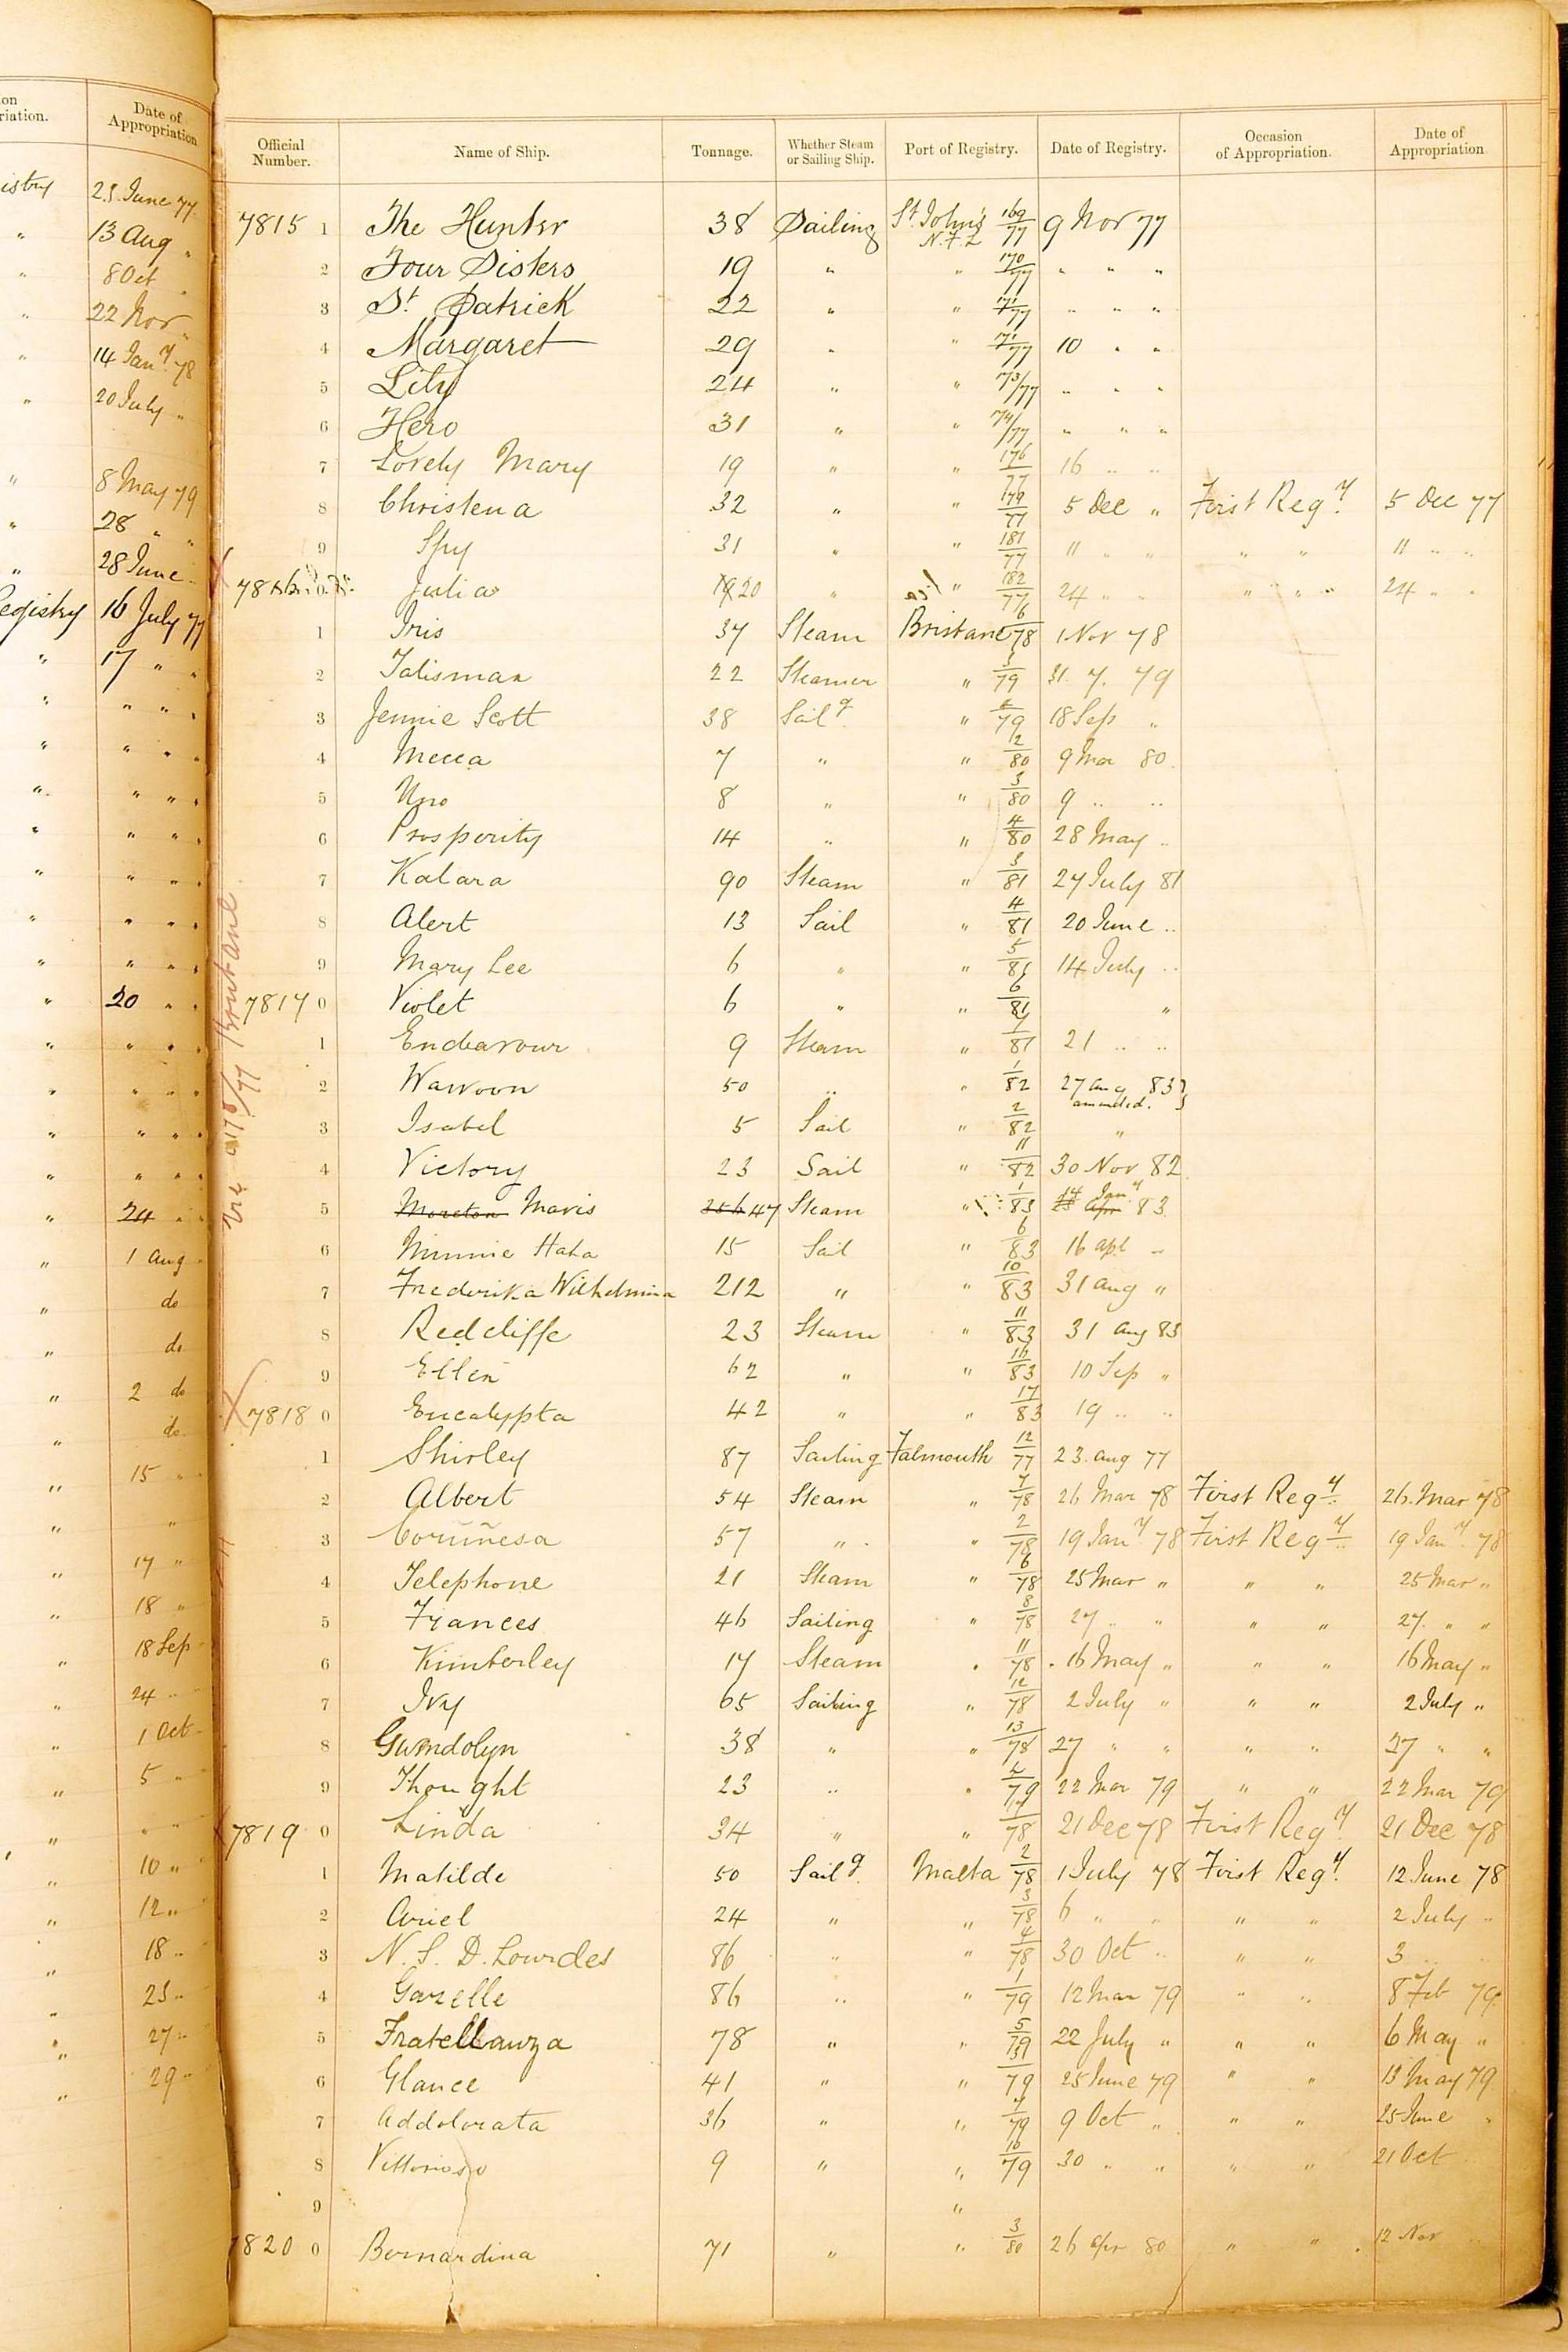 on
riation.
Date of
Appropriation
istry 25 June 77
" 13 Aug "
" 8 Oct "
" 22 Nov "
" 14 Jan.y 78
" 20 July "
" 8 May 79
" 28 " "
" 28 June "
Registry 16 July 77
" 17 " "
" " " "
" " " "
" " " "
" " " "
" " " "
" " " "
" " " "
" 20 " "
" " " "
" " " "
" " " "
" " " "
" 24 " "
" 1 Aug "
" do
" do
" 2 do
" do
" 15 "
" "
" 17 "
" 18 "
" 18 Sep "
" 24 "
" 1 Oct "
" 5 "
" " "
" 10 "
" 12 "
" 18 "
" 25 "
" 27 "
" 29 "
Official Number. Name of Ship. Tonnage. Whether Steam or Sailing Ship. Port of Registry. Date of Registry. Occasion of Appropriation. Date of Appropriation
7815 1 The Hunter 38 Sailing St Johns N.F.L 169/77 9 Nov 77
2 Four Sisters 19 " " 170/77 " " "
3 St Patrick 22 " " 171/77 " " "
4 Margaret 29 " " /77 10 " "
5 Lily 24 " " 173/77 " " "
6 Hero 31 " " 174/77 " " "
7 Lovely Mary 19 " " 176/77 16 " "
8 Christena 32 " " 179/77 5 Dec " First Reg.y 5 Dec 77
9 Spy 31 " " 181/77 11 " " " " 11 " "
7816 0 Julia 19 20 " " 182/77 24 " " " " " 24 " "
1 Iris 37 Steam Brisbane 6/78 1 Nov 78
2 Talisman 22 Steamer " 3/79 31. 7. 79
3 Jennie Scott 38 Sailg. " 4/79 18 Sep "
4 Mecca 7 " " 2/80 9 Mar 80
5 Uno 8 " " 3/80 9 " "
6 Prosperity 14 " " 4/80 28 May "
7 Kalara 90 Steam " 3/81 27 July 81
8 Alert 13 Sail " 4/81 20 June "
9 Mary Lee 6 " " 5/81 14 July "
7817 0 Violet 6 " " 6/81 "
1 Endeavour 9 Steam " 7/81 21 " "
2 Wawoon 50 " " 1/82 27 Aug 83 }
amended. }
3 Isabel 5 Sail " 2/82 "
4 Victory 23 Sail " 11/82 30 Nov 82
5 Moreton Mavis 256 47 Steam " 1/83 14 Jan.y 25 Apr 83
6 Minnie Haha 15 Sail " 6/83 16 Apl "
7 Frederika Wilhelmina 212 " " 10/83 31 Aug "
8 Redcliffe 23 Steam " 11/83 31 Aug 83
9 Ellen 62 " " 16/83 10 Sep "
7818 0 Eucalypta 42 " " 17/83 19 " "
1 Shirley 87 Sailing Falmouth 12/77 23 Aug 77
2 Albert 54 Steam " 7/78 26 Mar 78 First Reg.y 26. Mar 78
3 Coruñesa 57 " " 2/78 19 Jan.y 78 First Reg.y 19 Jan.y 78
4 Telephone 21 Steam " 6/78 25 Mar " " " 25 Mar "
5 Frances 46 Sailing " 8/78 27 " " " " 27 " "
6 Kimberley 17 Steam " 11/78 16 May " " " 16 May "
7 Ivy 65 Sailing " 12/78 2 July " " " 2 July "
8 Gwendolyn 38 " " 13/78 27 " " " " 27 " "
9 Thought 23 " " 4/79 22 Mar 79 " " 22 Mar 79
7819 0 Linda 34 " " 17/78 21 Dec 78 First Reg.y 21 Dec 78
1 Matilde 50 Sailg. Malta 2/78 1 July 78 First Reg.y 12 June 78
2 Ariel 24 " " 3/78 6 " " " " 2 July "
3 N. S. D. Lourdes 86 " " 4/78 30 Oct " " " 3 "
4 Gazelle 86 " " 1/79 12 Mar 79 " " 8 Feb 79
5 Fratellanza 78 " " 5/79 22 July " " " 6 May "
6 Glance 41 " " 3/79 25 June 79 " " 13 May 79
7 Addolorata 36 " " 7/79 9 Oct " " " 25 June "
8 Vittorioso 9 " " 10/79 30 " " " " 21 Oct
9 "
7820 0 Bernardina 71 " " 3/80 26 Apr 80 " " 12 Nov "